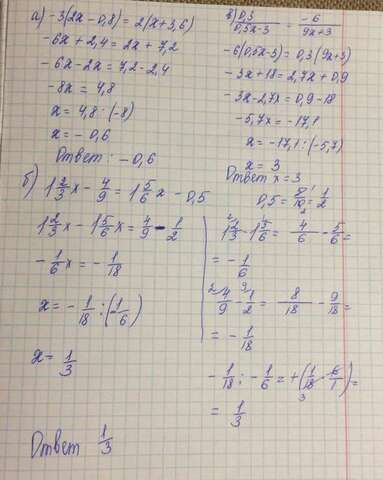 а) -3(2x - 0,8) = 2(x + 3,6)
-6x + 2,4 = 2x + 7,2
-6x - 2x = 7,2 - 2,4
-8x = 4,8
x = 4,8 : (-8)
x = -0,6
Ответ: -0,6
в) 0,3/(0,5x-3) = -6/(9x+3)
-6(0,5x-3) = 0,3(9x+3)
-3x + 18 = 2,7x + 0,9
-3x - 2,7x = 0,9 - 18
-5,7x = -17,1
x = -17,1 : (-5,7)
x = 3
Ответ x = 3
б) 1 2/3 x - 4/9 = 1 5/6 x - 0,5
1 2/3 x - 1 5/6 x = 4/9 - 1/2
-1/6 x = -1/18
x = -1/18 : (-1/6)
x = 1/3
Ответ 1/3
0,5 = 5/10 = 1/2
1 2/3 - 1 5/6 = 4/6 - 5/6 =
= -1/6
4/9 - 1/2 = 8/18 - 9/18 =
= -1/18
-1/18 : -1/6 = +(1/18 · 6/1) =
= 1/3